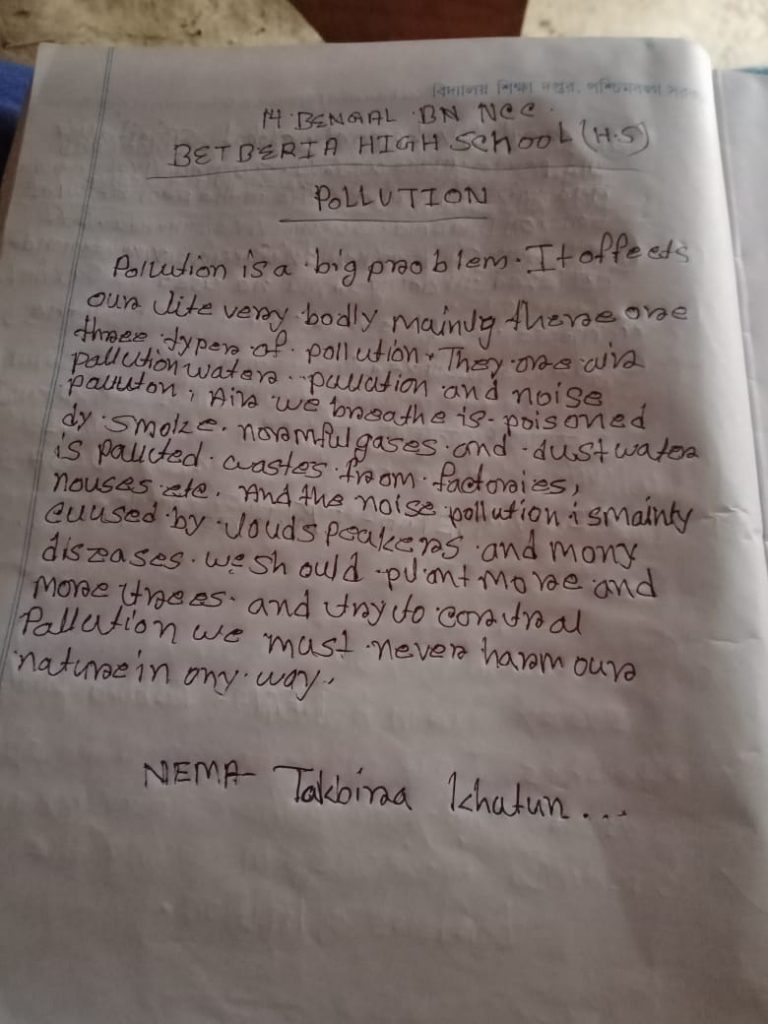 বিদ্যালয় শিক্ষা দপ্তর, পশ্চিমবঙ্গ
14 BENGAL BN NCC.
BETBERIA HIGH SCHOOL (H.S)
POLLUTION
Pollution is a big problem. It offects
our lite very bodly mainly there ore
three types of pollution. They ore air
pallution waters pullation and noise
palluton, Air we breathe is poisoned
dy smoke. normful gases and dust water
is pallcted. wastes from factories,
nouses ete. And the noise pollution ismainty
cuused by loudspeakers and mony
diszases. we should plont more and
more trees. and try to contral
Pallution we must never harm our
nature in ony way.
NEMA- Takbiraa Khatun...